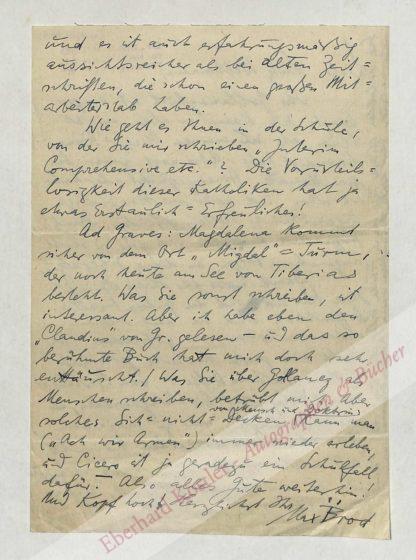 und es ist auch erfahrungsmäßig
aussichtsreicher als bei alten Zeit=
schriften, die schon einen großen Mit=
arbeiterstab haben.
Wie geht es Ihnen in der Schule,
von der Sie mir schrieben „Interim
Comprehensive etc."? Die Vorurteils=
losigkeit dieser Katholiken hat ja
etwas Erstaunlich=Erfreuliches!
Ad Graves: Magdalena kommt
sicher von dem Ort „Migdal" = Turm,
der noch heute am See von Tiberias
besteht. Was Sie sonst schreiben, ist
interessant. Aber ich habe eben den
„Claudius" von Gr. gelesen – und das so
berühmte Buch hat mich doch sehr
enttäuscht. / Was Sie über
Menschen schreiben, betrübt mich. Aber
solches Sich=nicht=Decken von Mensch und kann man
(„Ach wir Armen") immer wieder erleben,
und Cicero ist ja geradezu ein Schulfall
dafür! – Also alles Gute weiterhin!
Und Kopf hoch! herzlichst Ihr
Max Brod
Eberhard Köstler Autographen & Bücher